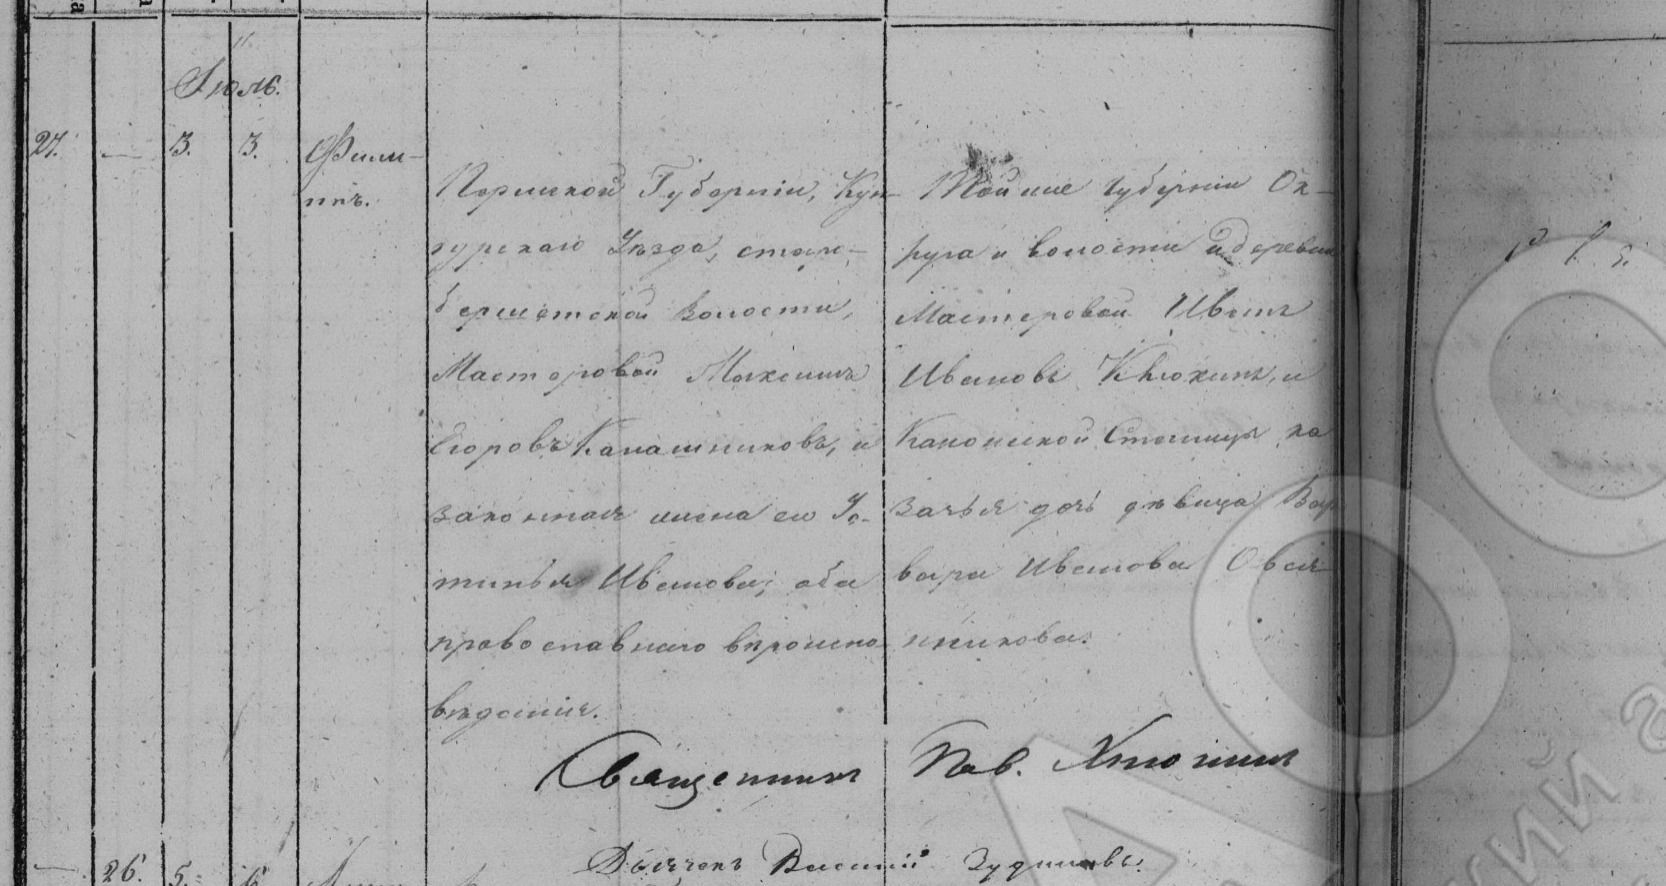 Іюль.
27. — 3. 3. Филип-
пъ.
Пермской Губерніи, Кун-
гурскаго Уѣзда, старо-
бершетской волости,
Мастеровой Максимъ
Егоровъ Калашниковъ, и
законная жена его Ус-
тинья Иванова; оба
православнаго вѣроиспо
вѣданія.
Той же губерніи Ок-
руга и волости и деревни
Мастеровой Иванъ
Ивановъ Клюкинъ, и
станицы ка
зачья дочь дѣвица Вар
вара Ивановa Овся-
нникова.
Священникъ Пав.
Дьячекъ Василій
26. 5. 6.